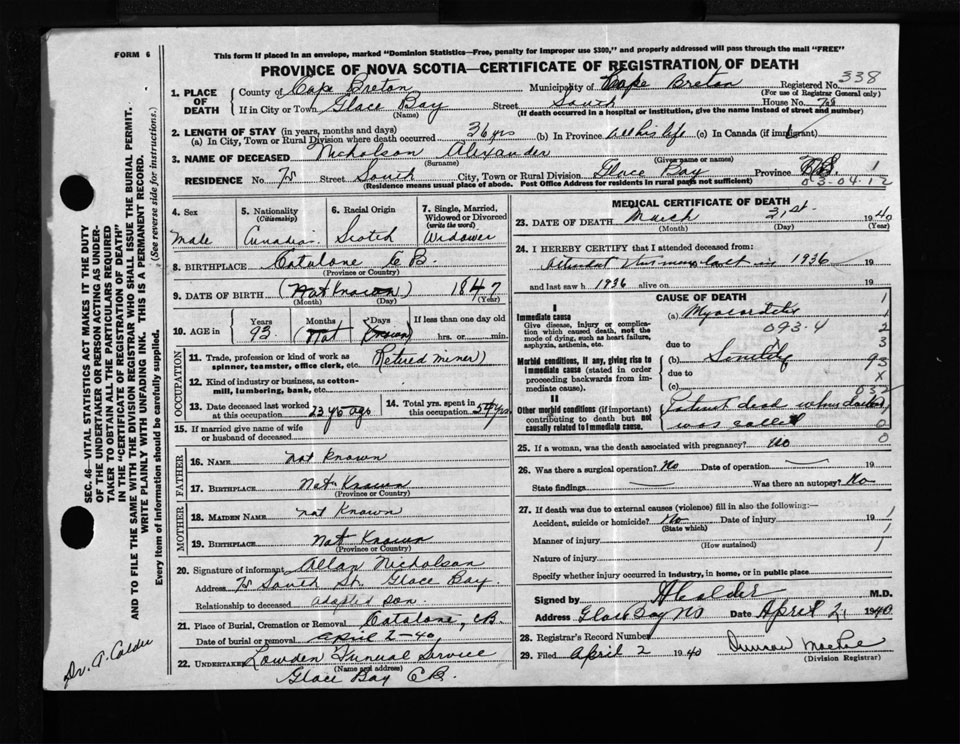 FORM 6
This form if placed in an envelope, marked "Dominion Statistics—Free, penalty for improper use $300," and properly addressed will pass through the mail "FREE"
PROVINCE OF NOVA SCOTIA—CERTIFICATE OF REGISTRATION OF DEATH
Registered No. 338
(For use of Registrar General only)
1. PLACE OF DEATH County of Cape Breton Municipality of Cape Breton
If in City or Town Glace Bay Street South House No. 75
(Name) (If death occurred in a hospital or institution, give the name instead of street and number)
2. LENGTH OF STAY (in years, months and days)
(a) In City, Town or Rural Division where death occurred 36 yrs (b) In Province all his life (c) In Canada (if immigrant)
3. NAME OF DECEASED Nicholson Alexander
(Surname) (Given name or names)
RESIDENCE No. 75 Street South City, Town or Rural Division Glace Bay Province N.S. 1
(Residence means usual place of abode. Post Office Address for residents in rural parts not sufficient) 03-04.12
4. Sex Male
5. Nationality (Citizenship) Canadian
6. Racial Origin Scotch
7. Single, Married, Widowed or Divorced (write the word) Widower
8. BIRTHPLACE Catalone C B.
(Province or Country)
9. DATE OF BIRTH (Not known) 1847
(Month) (Day) (Year)
10. AGE in Years 93 Months (Not Days known) If less than one day old
hrs. or min.
OCCUPATION
11. Trade, profession or kind of work as spinner, teamster, office clerk, etc. (Retired miner)
12. Kind of industry or business, as cotton-mill, lumbering, bank, etc.
13. Date deceased last worked at this occupation 23 yrs ago
14. Total yrs. spent in this occupation yrs.
15. If married give name of wife or husband of deceased
FATHER
16. NAME not known
17. BIRTHPLACE Not Known
(Province or Country)
MOTHER
18. MAIDEN NAME not Known
19. BIRTHPLACE Not Known
(Province or Country)
20. Signature of informant Allan Nicholson
Address 75 South St. Glace Bay.
Relationship to deceased adopted son.
21. Place of Burial, Cremation or Removal Catalone, CB.
Date of burial or removal April 2-40
22. UNDERTAKER Lowden Funeral Service
(Name and address)
Glace Bay C B.
MEDICAL CERTIFICATE OF DEATH
23. DATE OF DEATH March 31st. 1940
(Month) (Day) (Year)
24. I HEREBY CERTIFY that I attended deceased from:
last in 1936 19
and last saw h 1936 alive on 19
CAUSE OF DEATH 1
I
Immediate cause
Give disease, injury or complication which caused death, not the mode of dying, such as heart failure, asphyxia, asthenia, etc.
(a) Myocarditis 1
093.4 2
due to 3
Morbid conditions, if any, giving rise to immediate cause (stated in order proceeding backwards from immediate cause).
(b) Senility 93
due to X
(c) 032
II
Other morbid conditions (if important) contributing to death but not causally related to immediate cause.
Patient dead when doctor
was called 0
25. If a woman, was the death associated with pregnancy? No 0
26. Was there a surgical operation? No Date of operation 19
State findings Was there an autopsy? No
27. If death was due to external causes (violence) fill in also the following:—
Accident, suicide or homicide? No Date of injury 19 1
(State which)
Manner of injury 1
(How sustained)
Nature of injury
Specify whether injury occurred in industry, in home, or in public place
Signed by A Calder M.D.
Address Glace Bay NS Date April 2, 1940
28. Registrar's Record Number
29. Filed April 2 1940
(Division Registrar)
SEC. 46—VITAL STATISTICS ACT MAKES IT THE DUTY
OF THE UNDERTAKER OR PERSON ACTING AS UNDER-
TAKER TO OBTAIN ALL THE PARTICULARS REQUIRED
IN THE "CERTIFICATE OF REGISTRATION OF DEATH"
AND TO FILE THE SAME WITH THE DIVISION REGISTRAR WHO SHALL ISSUE THE BURIAL PERMIT.
WRITE PLAINLY WITH UNFADING INK. THIS IS A PERMANENT RECORD.
Every item of information should be carefully supplied. (See reverse side for instructions.)
Dr. A. Calder